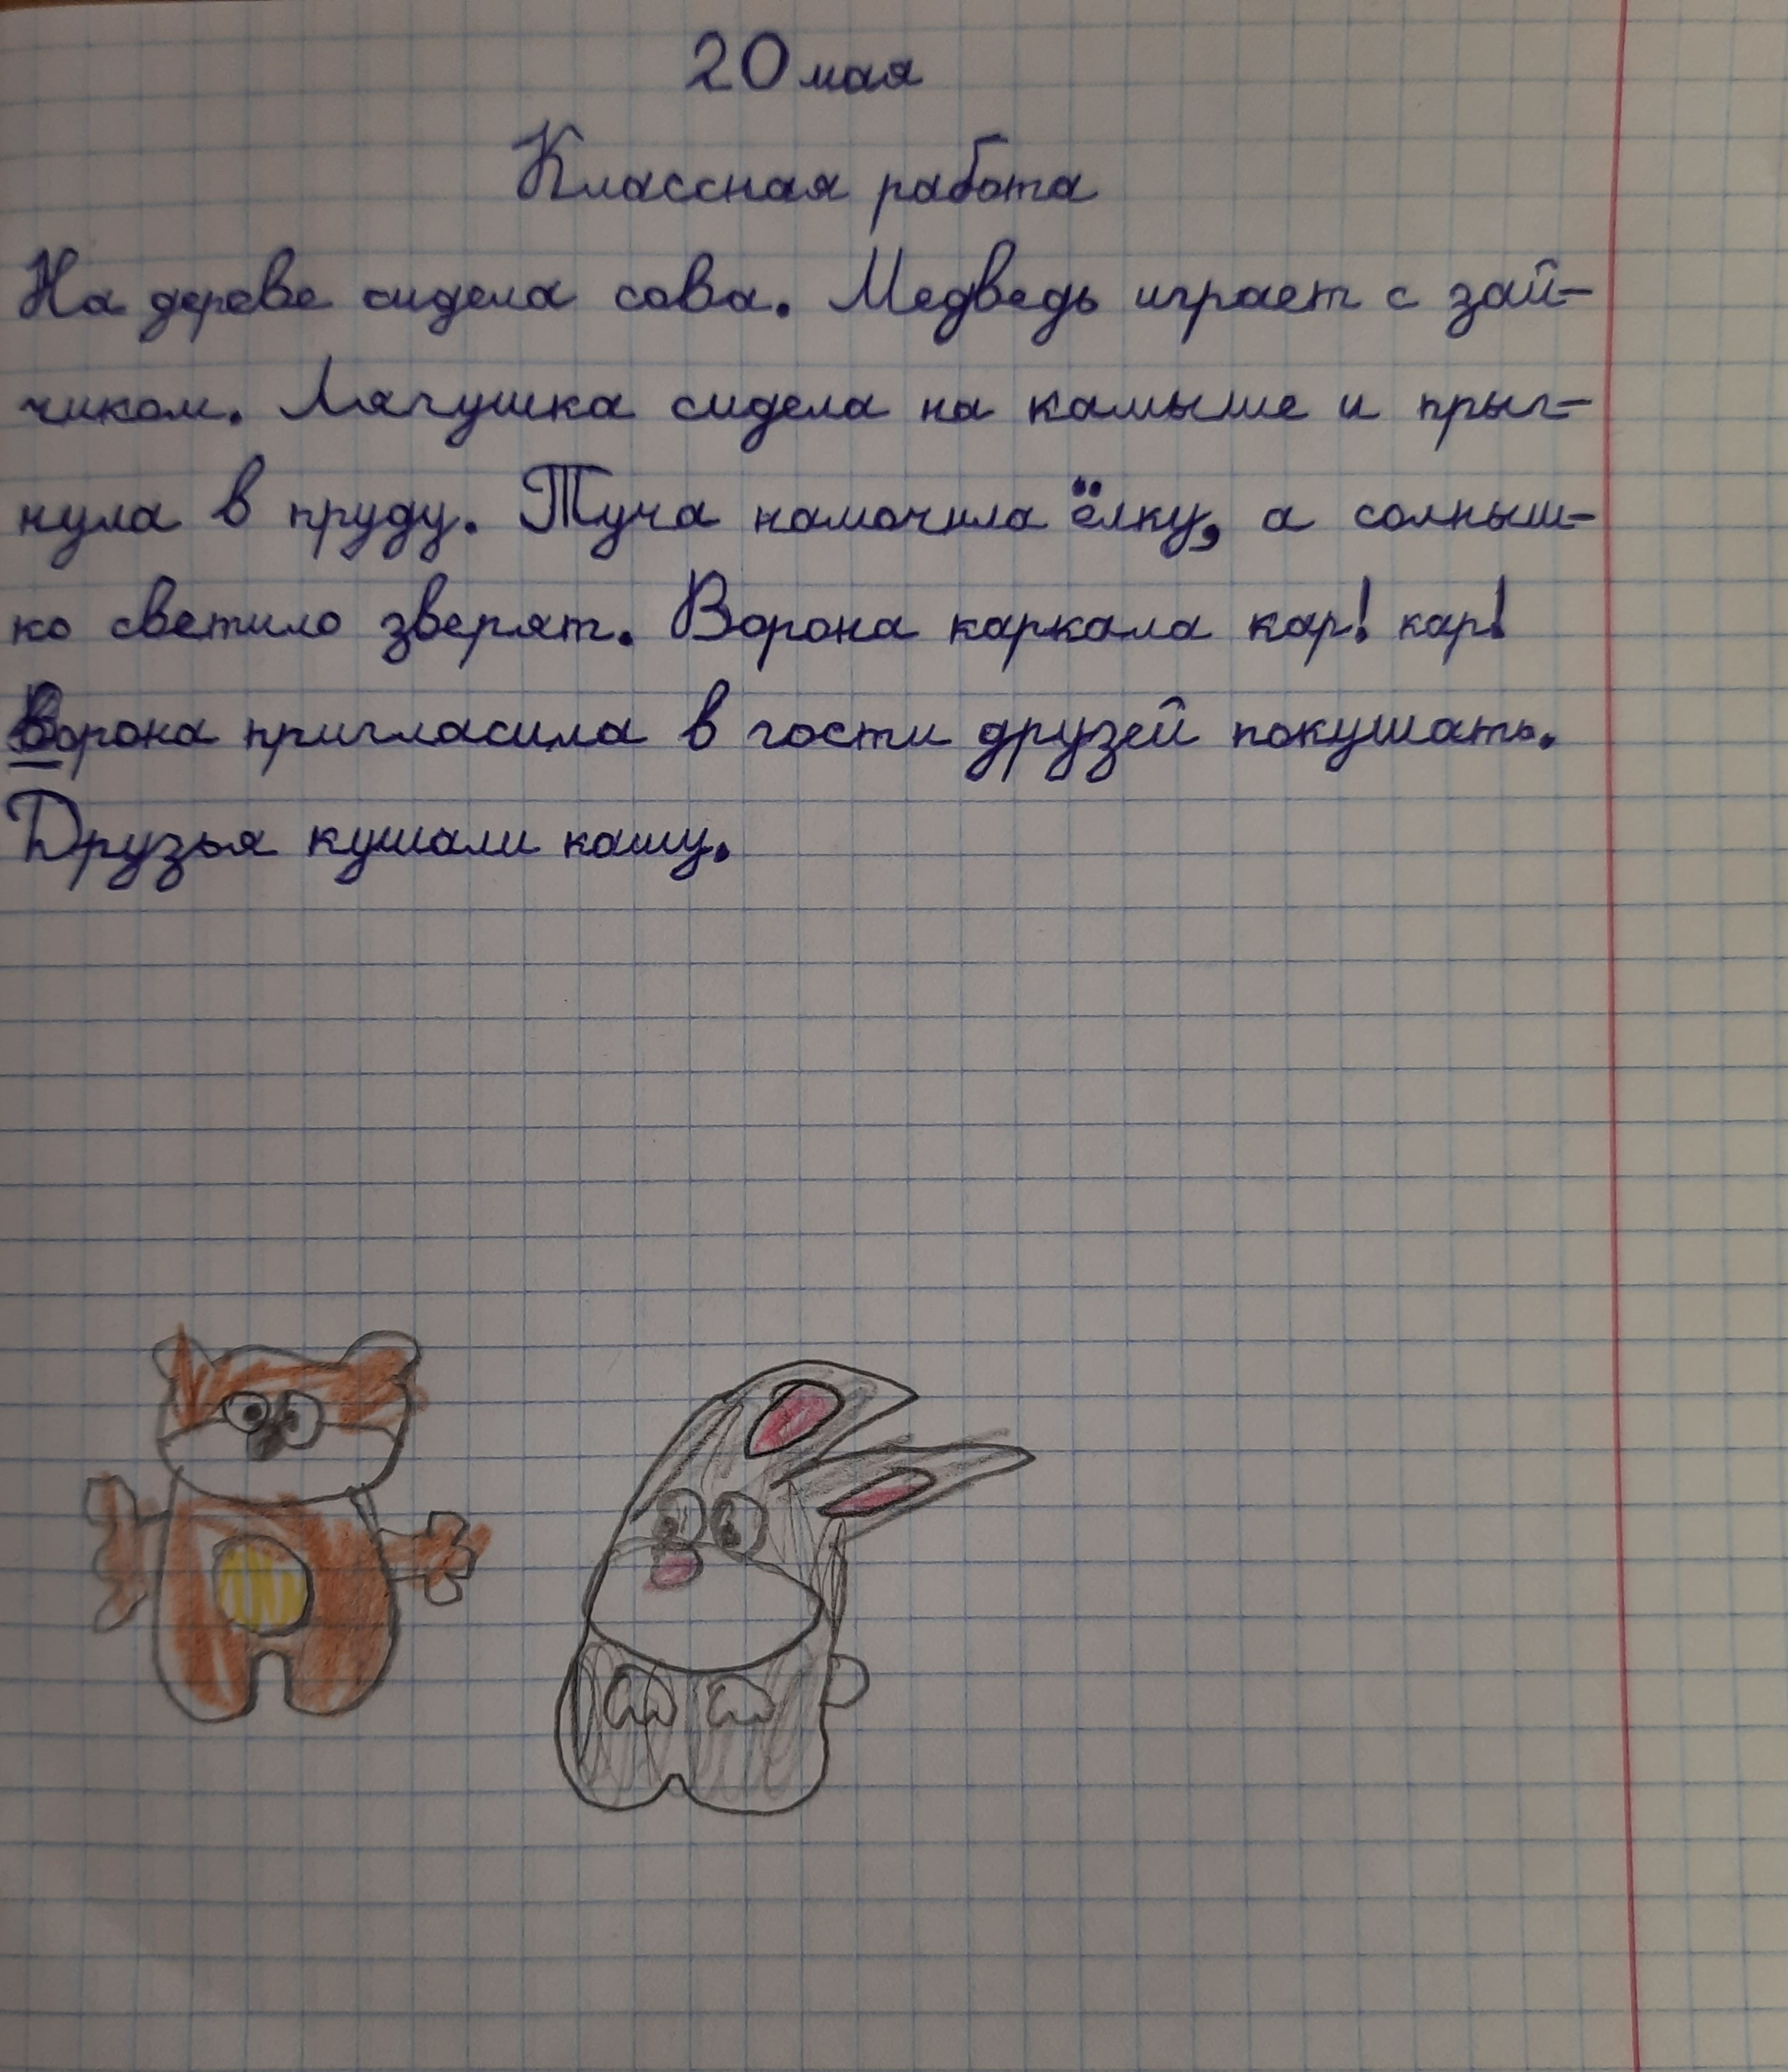 20 мая
Классная работа
На дереве сидела сова. Медведь играет с зай-
чиком. Лягушка сидела на камыше и прыг-
нула в пруду. Туча намочила ёлку, а солныш-
ко светило зверят. Ворона каркала кар! кар!
Ворона пригласила в гости друзей покушать.
Друзья кушали кашу.